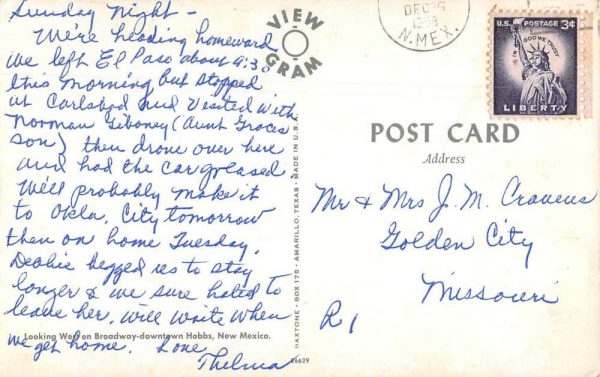 Sunday Night -
We're heading homeward
we left El Paso about 9:30
this morning but stopped
at Carlsbad and Visited with
Norman Giboney (Aunt Graces
son) then drove over here
and had the car greased
We'll probably make it
to Okla. City tomorrow
then on home Tuesday.
Debbie begged us to stay
longer & we sure hated to
leave her. Will write when
we get home. Love
Thelma
Looking West on Broadway-downtown Hobbs, New Mexico.
VIEW
GRAM
HAXTONE - BOX 175 - AMARILLO, TEXAS - MADE IN U.S.A.
26629
DEC
N. MEX.
U.S. POSTAGE 3¢
IN GOD WE TRUST
LIBERTY
POST CARD
Address
Mr & Mrs J. M. Cravens
Golden City
Missouri
R1